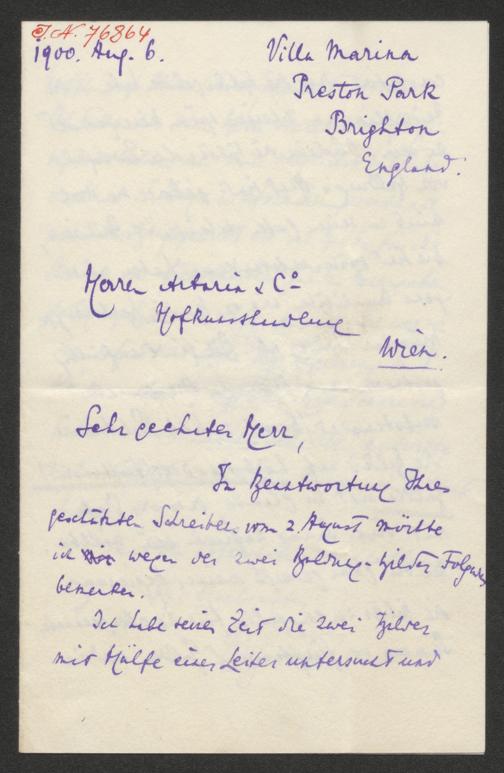 J.N. 76864
1900. Aug. 6.
Villa Marina
Preston Park
Brighton
England.
Herren Artaria & Co
Hofkunsthandlung
Wien.
Sehr geehrter Herr,
In Beantwortung Ihres
geschätzten Schreibens vom 2. August möchte
ich wegen der zwei Bilder Folgendes
bemerken.
Ich habe seiner Zeit die zwei Bilder
mit Hülfe einer Leiter untersucht und